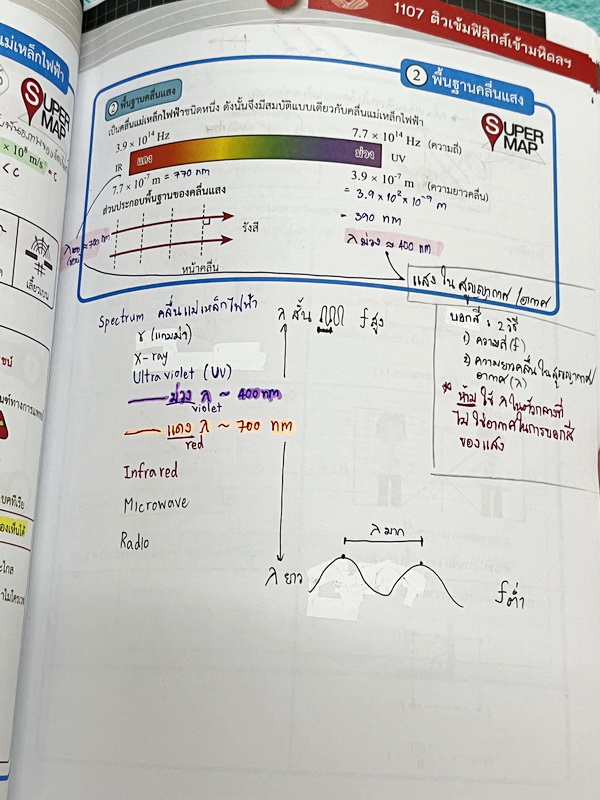 1107 ติวเข้มฟิสิกส์เข้ามหิดลฯ
แม่เหล็กไฟฟ้า
2 พื้นฐานคลื่นแสง
SUPER MAP
2 พื้นฐานคลื่นแสง
เป็นคลื่นแม่เหล็กไฟฟ้าชนิดหนึ่ง ดังนั้นจึงมีสมบัติแบบเดียวกับคลื่นแม่เหล็กไฟฟ้า
3.9 × 10¹⁴ Hz 7.7 × 10¹⁴ Hz (ความถี่)
IR แดง ม่วง UV
7.7 × 10⁻⁷ m = 770 nm 3.9 × 10⁻⁷ m (ความยาวคลื่น)
= 3.9 × 10² × 10⁻⁹ m
= 390 nm
λ ม่วง ≈ 400 nm
ส่วนประกอบพื้นฐานของคลื่นแสง
รังสี
หน้าคลื่น
≈ 700 nm
แสง ใน สุญญากาศ / อากาศ
บอกสี : 2 วิธี
1) ความถี่ (f)
2) ความยาวคลื่น ในสุญญากาศ/
อากาศ (λ)
** ห้าม ใช้ λ ในตัวกลางที่
ไม่ ใช่อากาศในการบอกสี
ของแสง
Spectrum คลื่นแม่เหล็กไฟฟ้า
λ สั้น f สูง
γ (แกมม่า)
X-ray
Ultraviolet (UV)
ม่วง λ ~ 400nm
violet
แดง λ ~ 700 nm
red
Infrared
Microwave
Radio
λ มาก
λ ยาว f ต่ำ